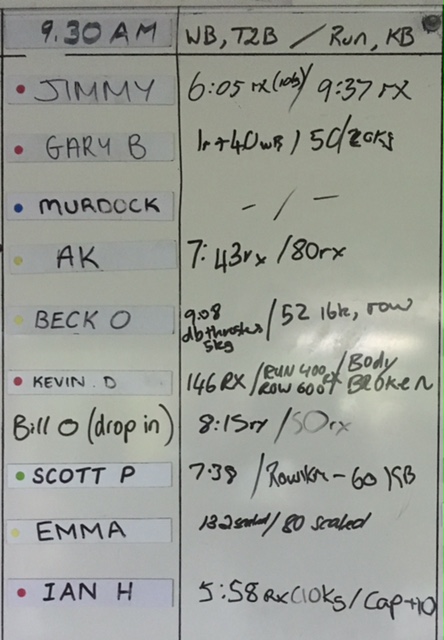 9.30 AM WB, T2B / Run, KB
JIMMY 6:05 rx (10s) / 9:37 rx
GARY B 1r+40 WB / 50/20kg
MURDOCK - / -
AK 7:43rx / 80rx
BECK O 9:08 db thrusters 5kg / 52 16k, row
KEVIN . D 146 RX / RUN 400, ROW 600 / Body Broken
Bill O (drop in) 8:15rx / 50rx
SCOTT P 7:38 / Row 1km - 60 KB
EMMA 132 scaled / 80 scaled
IAN H 5:58 RX (10Ks / Cap +10